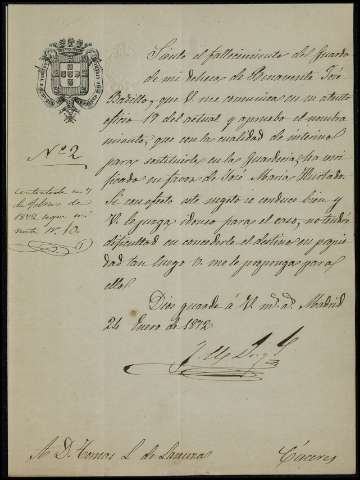 Siento el fallecimiento del Guarda
de mi dehesa de Benavente José
Badillo, que V. me comunica en su atento
oficio 17 del actual y apruebo el nombra
miento, que con la cualidad de interino
para sustituirle en la Guardería, ha veri
ficado en favor de José Maria Hurtado.
Si con efecto este sugeto se conduce bien y
V. le juzga idoneo para el caso, no tendré
dificultad en concederle el destino en propie
dad tan luego V. me lo proponga para
ello.
Dios guarde á V. ms. as. Madrid
24 Enero de 1872.
Nº 2
Contestada en 7
de febrero de
1872 segun mi
nuta nº 10.
A D. Tomás L. de Laguna
Cáceres